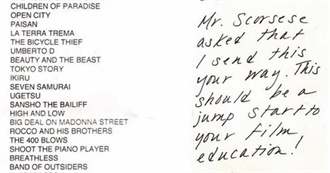 CHILDREN OF PARADISE
OPEN CITY
PAISAN
LA TERRA TREMA
THE BICYCLE THIEF
UMBERTO D
BEAUTY AND THE BEAST
TOKYO STORY
IKIRU
SEVEN SAMURAI
UGETSU
SANSHO THE BAILIFF
HIGH AND LOW
BIG DEAL ON MADONNA STREET
ROCCO AND HIS BROTHERS
THE 400 BLOWS
SHOOT THE PIANO PLAYER
BREATHLESS
BAND OF OUTSIDERS
Mr. Scorsese
asked that
I send this
your way. This
should be a
jump start to
your film
education!